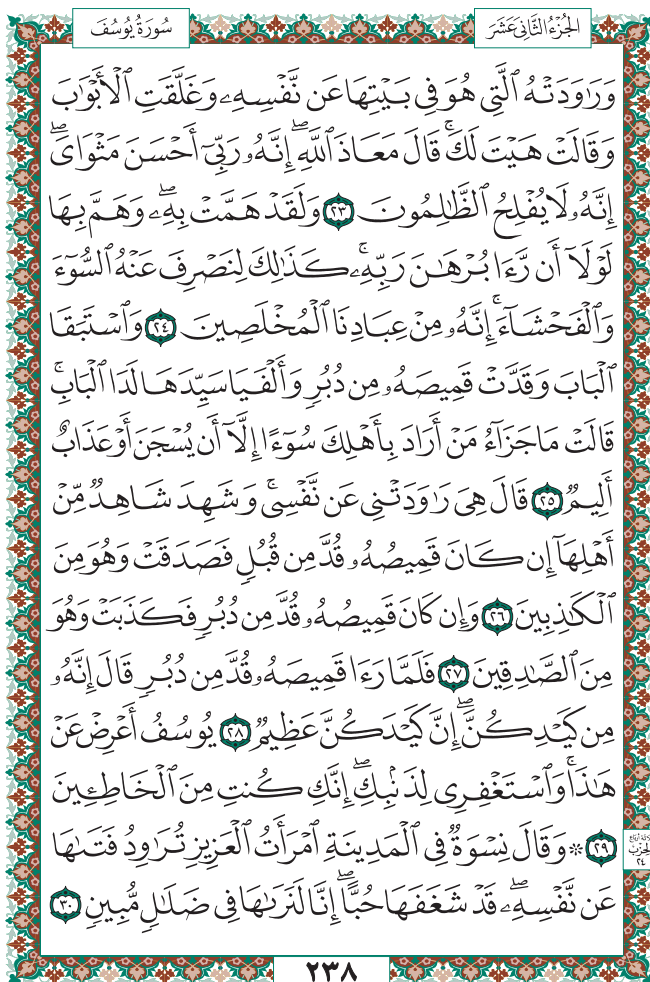 الجُزْءُ الثَّانِيَ عَشَرَ
سُورَةُ يُوسُفَ
وَرَٰوَدَتْهُ ٱلَّتِى هُوَ فِى بَيْتِهَا عَن نَّفْسِهِۦ وَغَلَّقَتِ ٱلْأَبْوَٰبَ
وَقَالَتْ هَيْتَ لَكَ ۚ قَالَ مَعَاذَ ٱللَّهِ ۖ إِنَّهُۥ رَبِّىٓ أَحْسَنَ مَثْوَاىَ ۖ
إِنَّهُۥ لَا يُفْلِحُ ٱلظَّٰلِمُونَ ٢٣ وَلَقَدْ هَمَّتْ بِهِۦ ۖ وَهَمَّ بِهَا
لَوْلَآ أَن رَّءَا بُرْهَٰنَ رَبِّهِۦ ۚ كَذَٰلِكَ لِنَصْرِفَ عَنْهُ ٱلسُّوٓءَ
وَٱلْفَحْشَآءَ ۚ إِنَّهُۥ مِنْ عِبَادِنَا ٱلْمُخْلَصِينَ ٢٤ وَٱسْتَبَقَا
ٱلْبَابَ وَقَدَّتْ قَمِيصَهُۥ مِن دُبُرٍ وَأَلْفَيَا سَيِّدَهَا لَدَا ٱلْبَابِ ۚ
قَالَتْ مَا جَزَآءُ مَنْ أَرَادَ بِأَهْلِكَ سُوٓءًا إِلَّآ أَن يُسْجَنَ أَوْ عَذَابٌ
أَلِيمٌ ٢٥ قَالَ هِىَ رَٰوَدَتْنِى عَن نَّفْسِى ۚ وَشَهِدَ شَاهِدٌ مِّنْ
أَهْلِهَآ إِن كَانَ قَمِيصُهُۥ قُدَّ مِن قُبُلٍ فَصَدَقَتْ وَهُوَ مِنَ
ٱلْكَٰذِبِينَ ٢٦ وَإِن كَانَ قَمِيصُهُۥ قُدَّ مِن دُبُرٍ فَكَذَبَتْ وَهُوَ
مِنَ ٱلصَّٰدِقِينَ ٢٧ فَلَمَّا رَءَا قَمِيصَهُۥ قُدَّ مِن دُبُرٍ قَالَ إِنَّهُۥ
مِن كَيْدِكُنَّ ۖ إِنَّ كَيْدَكُنَّ عَظِيمٌ ٢٨ يُوسُفُ أَعْرِضْ عَنْ
هَٰذَا ۚ وَٱسْتَغْفِرِى لِذَنۢبِكِ ۖ إِنَّكِ كُنتِ مِنَ ٱلْخَاطِـِٔينَ
٢٩ ۞ وَقَالَ نِسْوَةٌ فِى ٱلْمَدِينَةِ ٱمْرَأَتُ ٱلْعَزِيزِ تُرَٰوِدُ فَتَىٰهَا
عَن نَّفْسِهِۦ ۖ قَدْ شَغَفَهَا حُبًّا ۖ إِنَّا لَنَرَىٰهَا فِى ضَلَٰلٍ مُّبِينٍ ٣٠
ثلاثة أرباع
الحزب
٢٤
٢٣٨